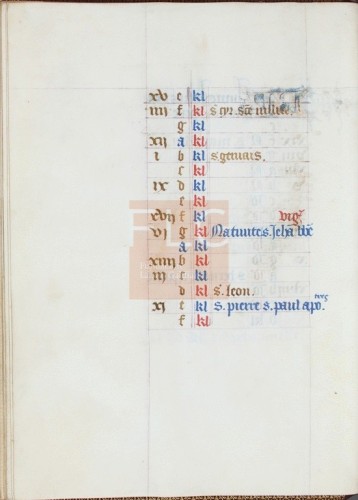 xv e kl
iiii f kl s cyr. sce iulite.
g kl
xii a kl
i b kl s geruais.
c kl
ix d kl
e kl
xvii f kl vig̃.
vi g kl Natiuite s. Jehã bx̃e
a kl
xiiii b kl
iii c kl
d kl s. leon.
xi e kl s. pierre s. paul apo.tres
f kl